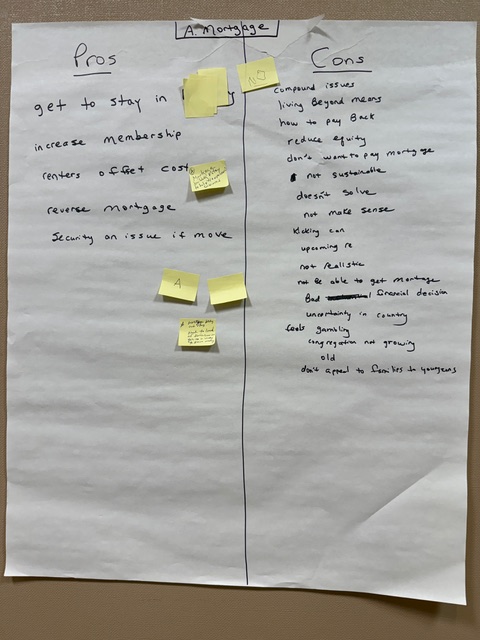 A. Mortgage
Pros
get to stay in
increase membership
renters offset cost
reverse mortgage
Security an issue if move
A
NO
Cons
compound issues
living Beyond means
how to pay Back
reduce equity
don't want to pay mortgage
not sustainable
doesn't solve
not make sense
kicking can
upcoming re
not realistic
not be able to get mortgage
Bad financial decision
uncertainty in country
feels gambling
congregation not growing
old
don't appeal to families to youngeons